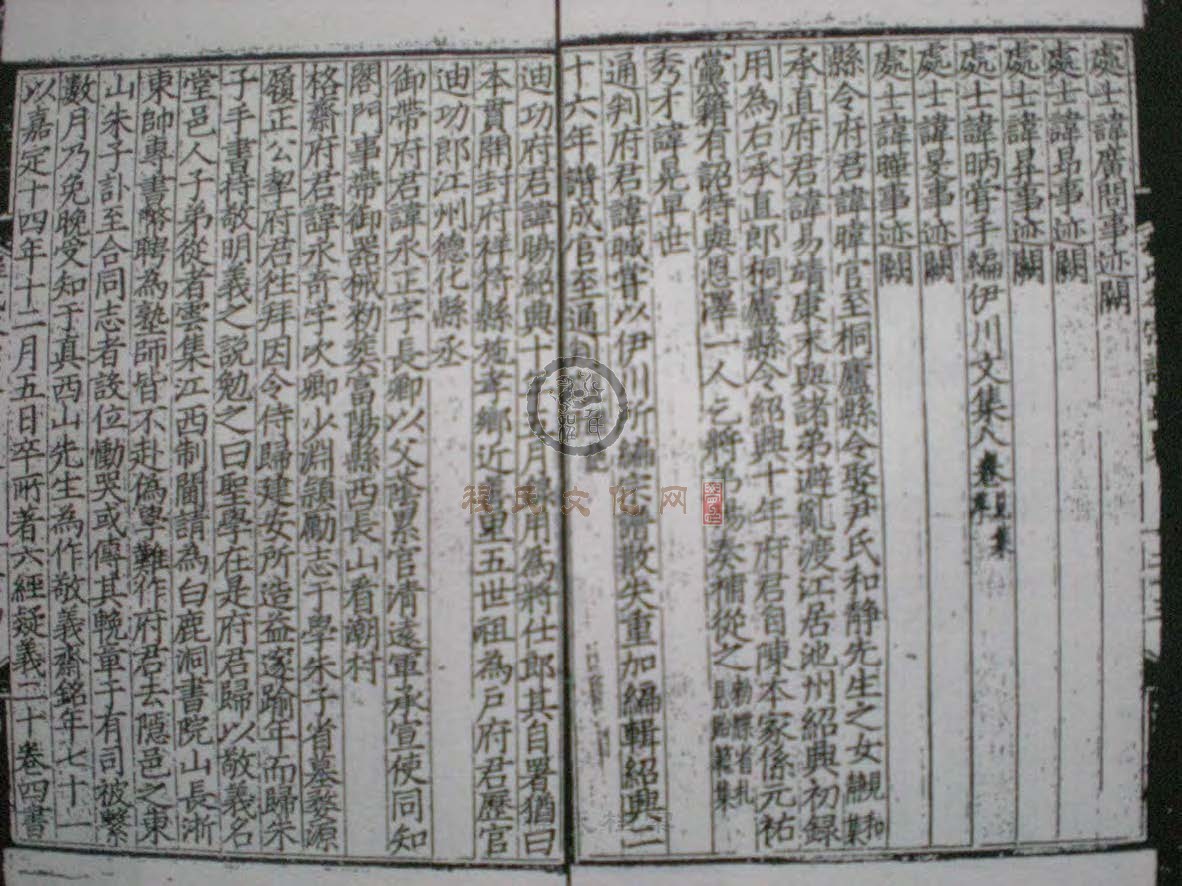 處士諱廣問事迹闕
處士諱昂事迹闕
處士諱昇事迹闕
處士諱昞嘗手編伊川文集八卷見集
處士諱旻事迹闕
處士諱曄事迹闕
縣令府君諱暐官至桐廬縣令娶尹氏和靜先生之女觀和集
承直府君諱易靖康末與諸弟避亂渡江居池州紹興初錄
用為右承直郎桐廬縣令紹興十年府君自陳本家係元祐
黨籍有詔特與恩澤一人乞將弟暘奏補從之勑牒省札見貽範集
秀才諱晃早世
通判府君諱晠嘗以伊川所編宗譜散失重加編輯紹興二
十六年譜成官至通
迪功府君諱暘紹興十年 月錄用為將仕郎其自署猶曰
本貫開封府祥符縣 孝鄉近 里五世祖為戶府君歷官
迪功郎江州德化縣丞
御帶府君諱永正字長卿以父蔭累官清遠軍承宣使同知
閤門事帶御器械勑葬富陽縣西長山看潮村
格齋府君諱永奇字次卿少淵韻勵志于學朱子省墓婺源
履正公挈府君往拜因令侍歸建安所造益邃踰年而歸朱
子手書持敬明義之說勉之曰聖學在是府君歸以敬義名
堂邑人子弟從者雲集江西制閫請為白鹿洞書院山長浙
東帥專書幣聘為塾師皆不赴偽學難作府君去隱邑之東
山朱子訃至合同志者設位慟哭或傳其輓章于有司被繫
數月乃免晚受知于真西山先生為作敬義齋銘年七十一
以嘉定十四年十二月五日卒所著六經疑義二十卷四書
程氏文化网